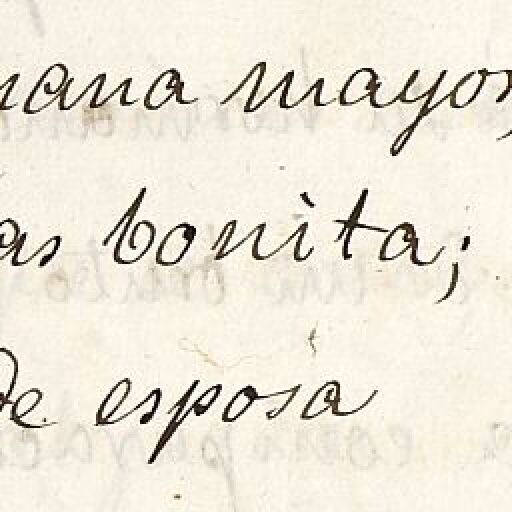 mana mayor,
as bonita;
de esposa